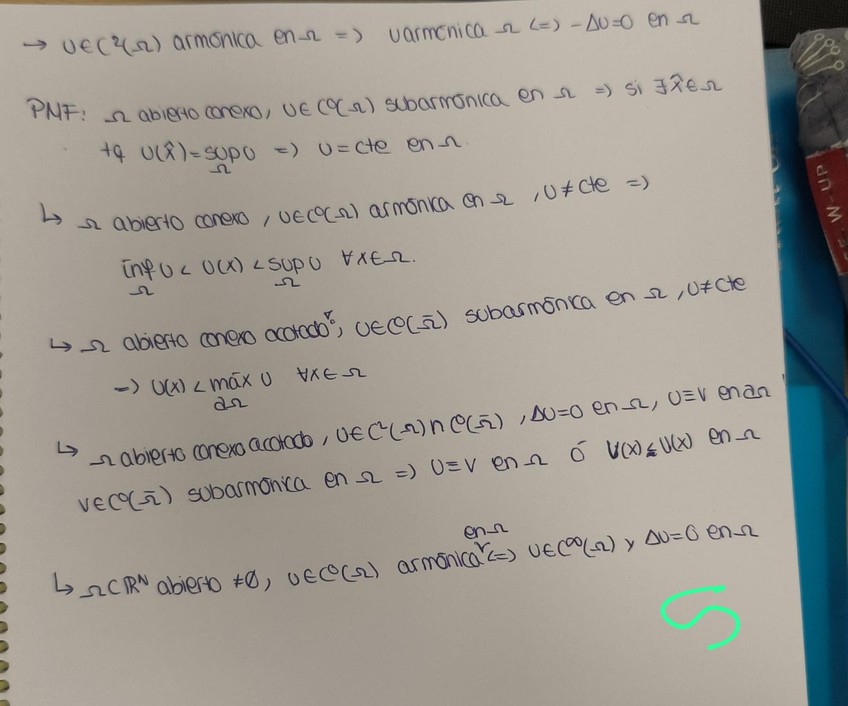 → U∈C²(Ω) armónica en Ω => U armónica Ω <=> -ΔU=0 en Ω
PNF: Ω abierto conexo, U∈C⁰(Ω) subarmónica en Ω => si ∃x̂∈Ω
tq U(x̂)=sup U => U=cte en Ω.
Ω
↳ Ω abierto conexo, U∈C⁰(Ω) armónica en Ω, U≠cte =>
inf U < U(x) < sup U ∀x∈Ω.
Ω Ω
↳ Ω abierto conexo acotado, U∈C⁰(Ω̄) subarmónica en Ω, U≠cte
=> U(x) < máx U ∀x∈Ω
∂Ω
↳ Ω abierto conexo acotado, U∈C²(Ω)∩C⁰(Ω̄), ΔU=0 en Ω, U≡V en ∂Ω
V∈C⁰(Ω̄) subarmónica en Ω => U≡V en Ω ó V(x)≤U(x) en Ω
en Ω
↳ Ω⊂ℝᴺ abierto ≠∅, U∈C⁰(Ω) armónica <=> U∈C^∞(Ω) y ΔU=0 en Ω
5
W-UP